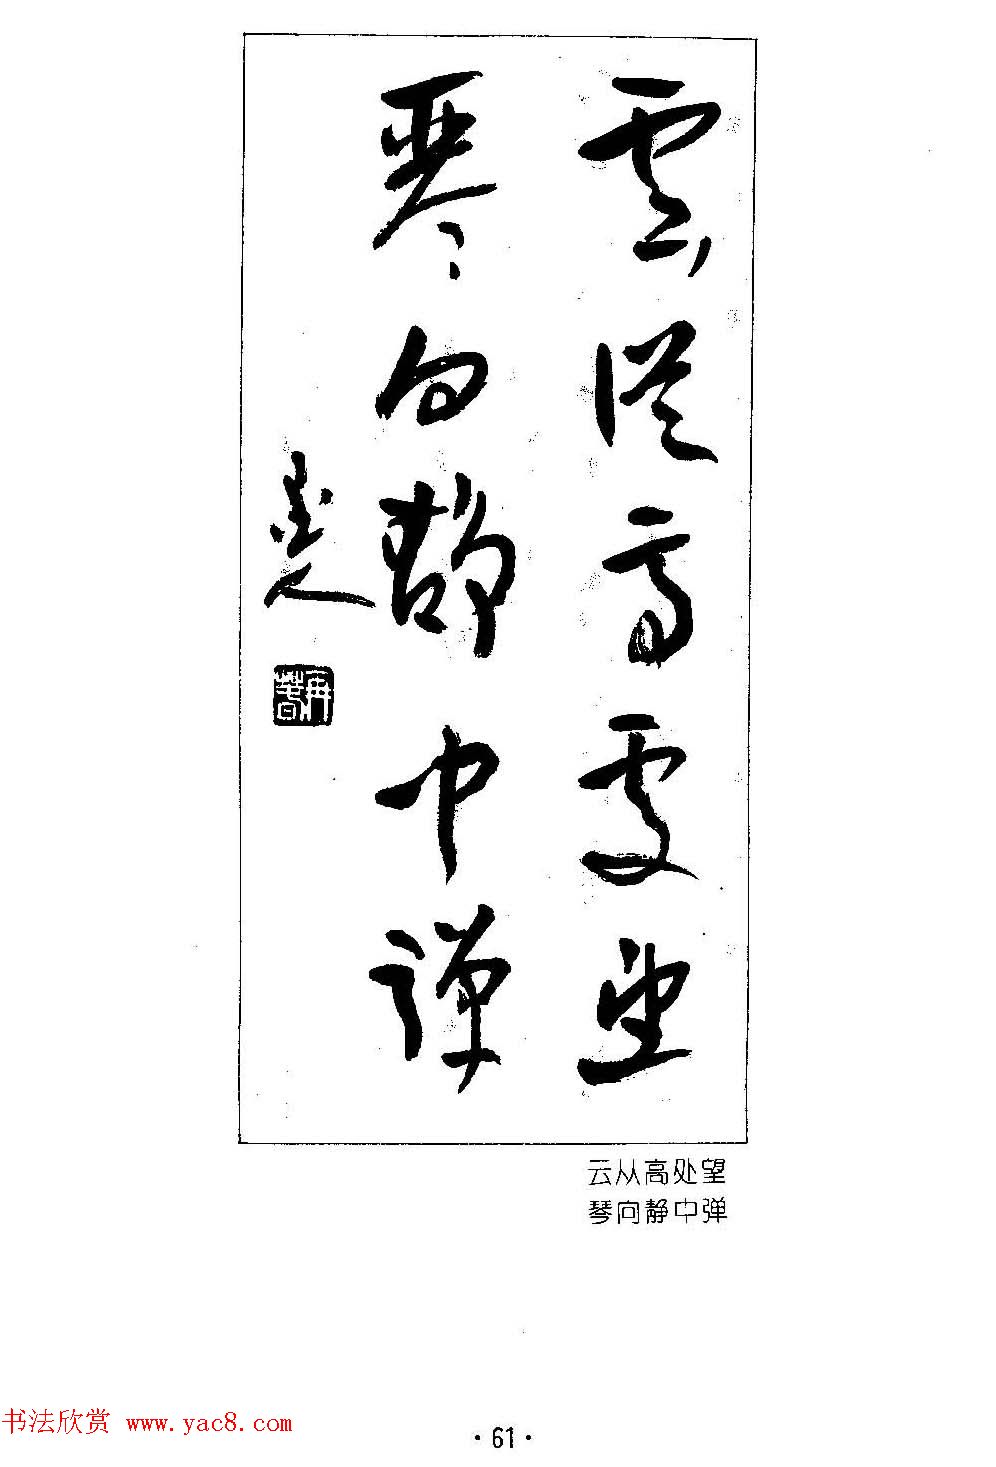 雲從高處望
琴向静中彈
云从高处望
琴向静中弹
书法欣赏 www.yac8.com
·61·